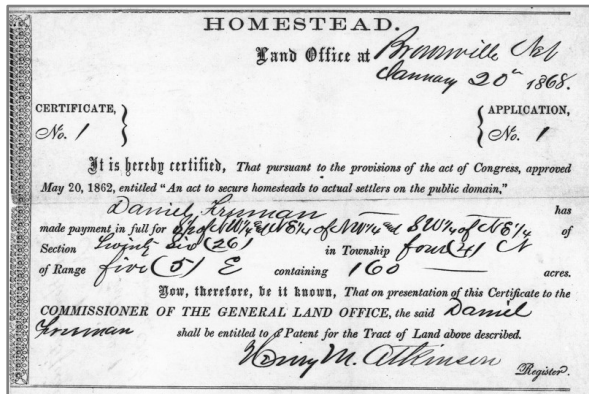 HOMESTEAD.
Land Office at Brownville Neb
January 20th 1868.
CERTIFICATE, No. 1
APPLICATION, No. 1
It is hereby certified, That pursuant to the provisions of the act of Congress, approved
May 20, 1862, entitled "An act to secure homesteads to actual settlers on the public domain,"
Daniel Freeman has
made payment in full for S½ of NW¼ & NE¼ of NW¼ & SW¼ of NE¼ of
Section Twenty Six (26) in Township four (4) N
of Range five (5) E containing 160 acres.
Now, therefore, be it known, That on presentation of this Certificate to the
COMMISSIONER OF THE GENERAL LAND OFFICE, the said Daniel
Freeman shall be entitled to a Patent for the Tract of Land above described.
Henry M. Atkinson
Register.